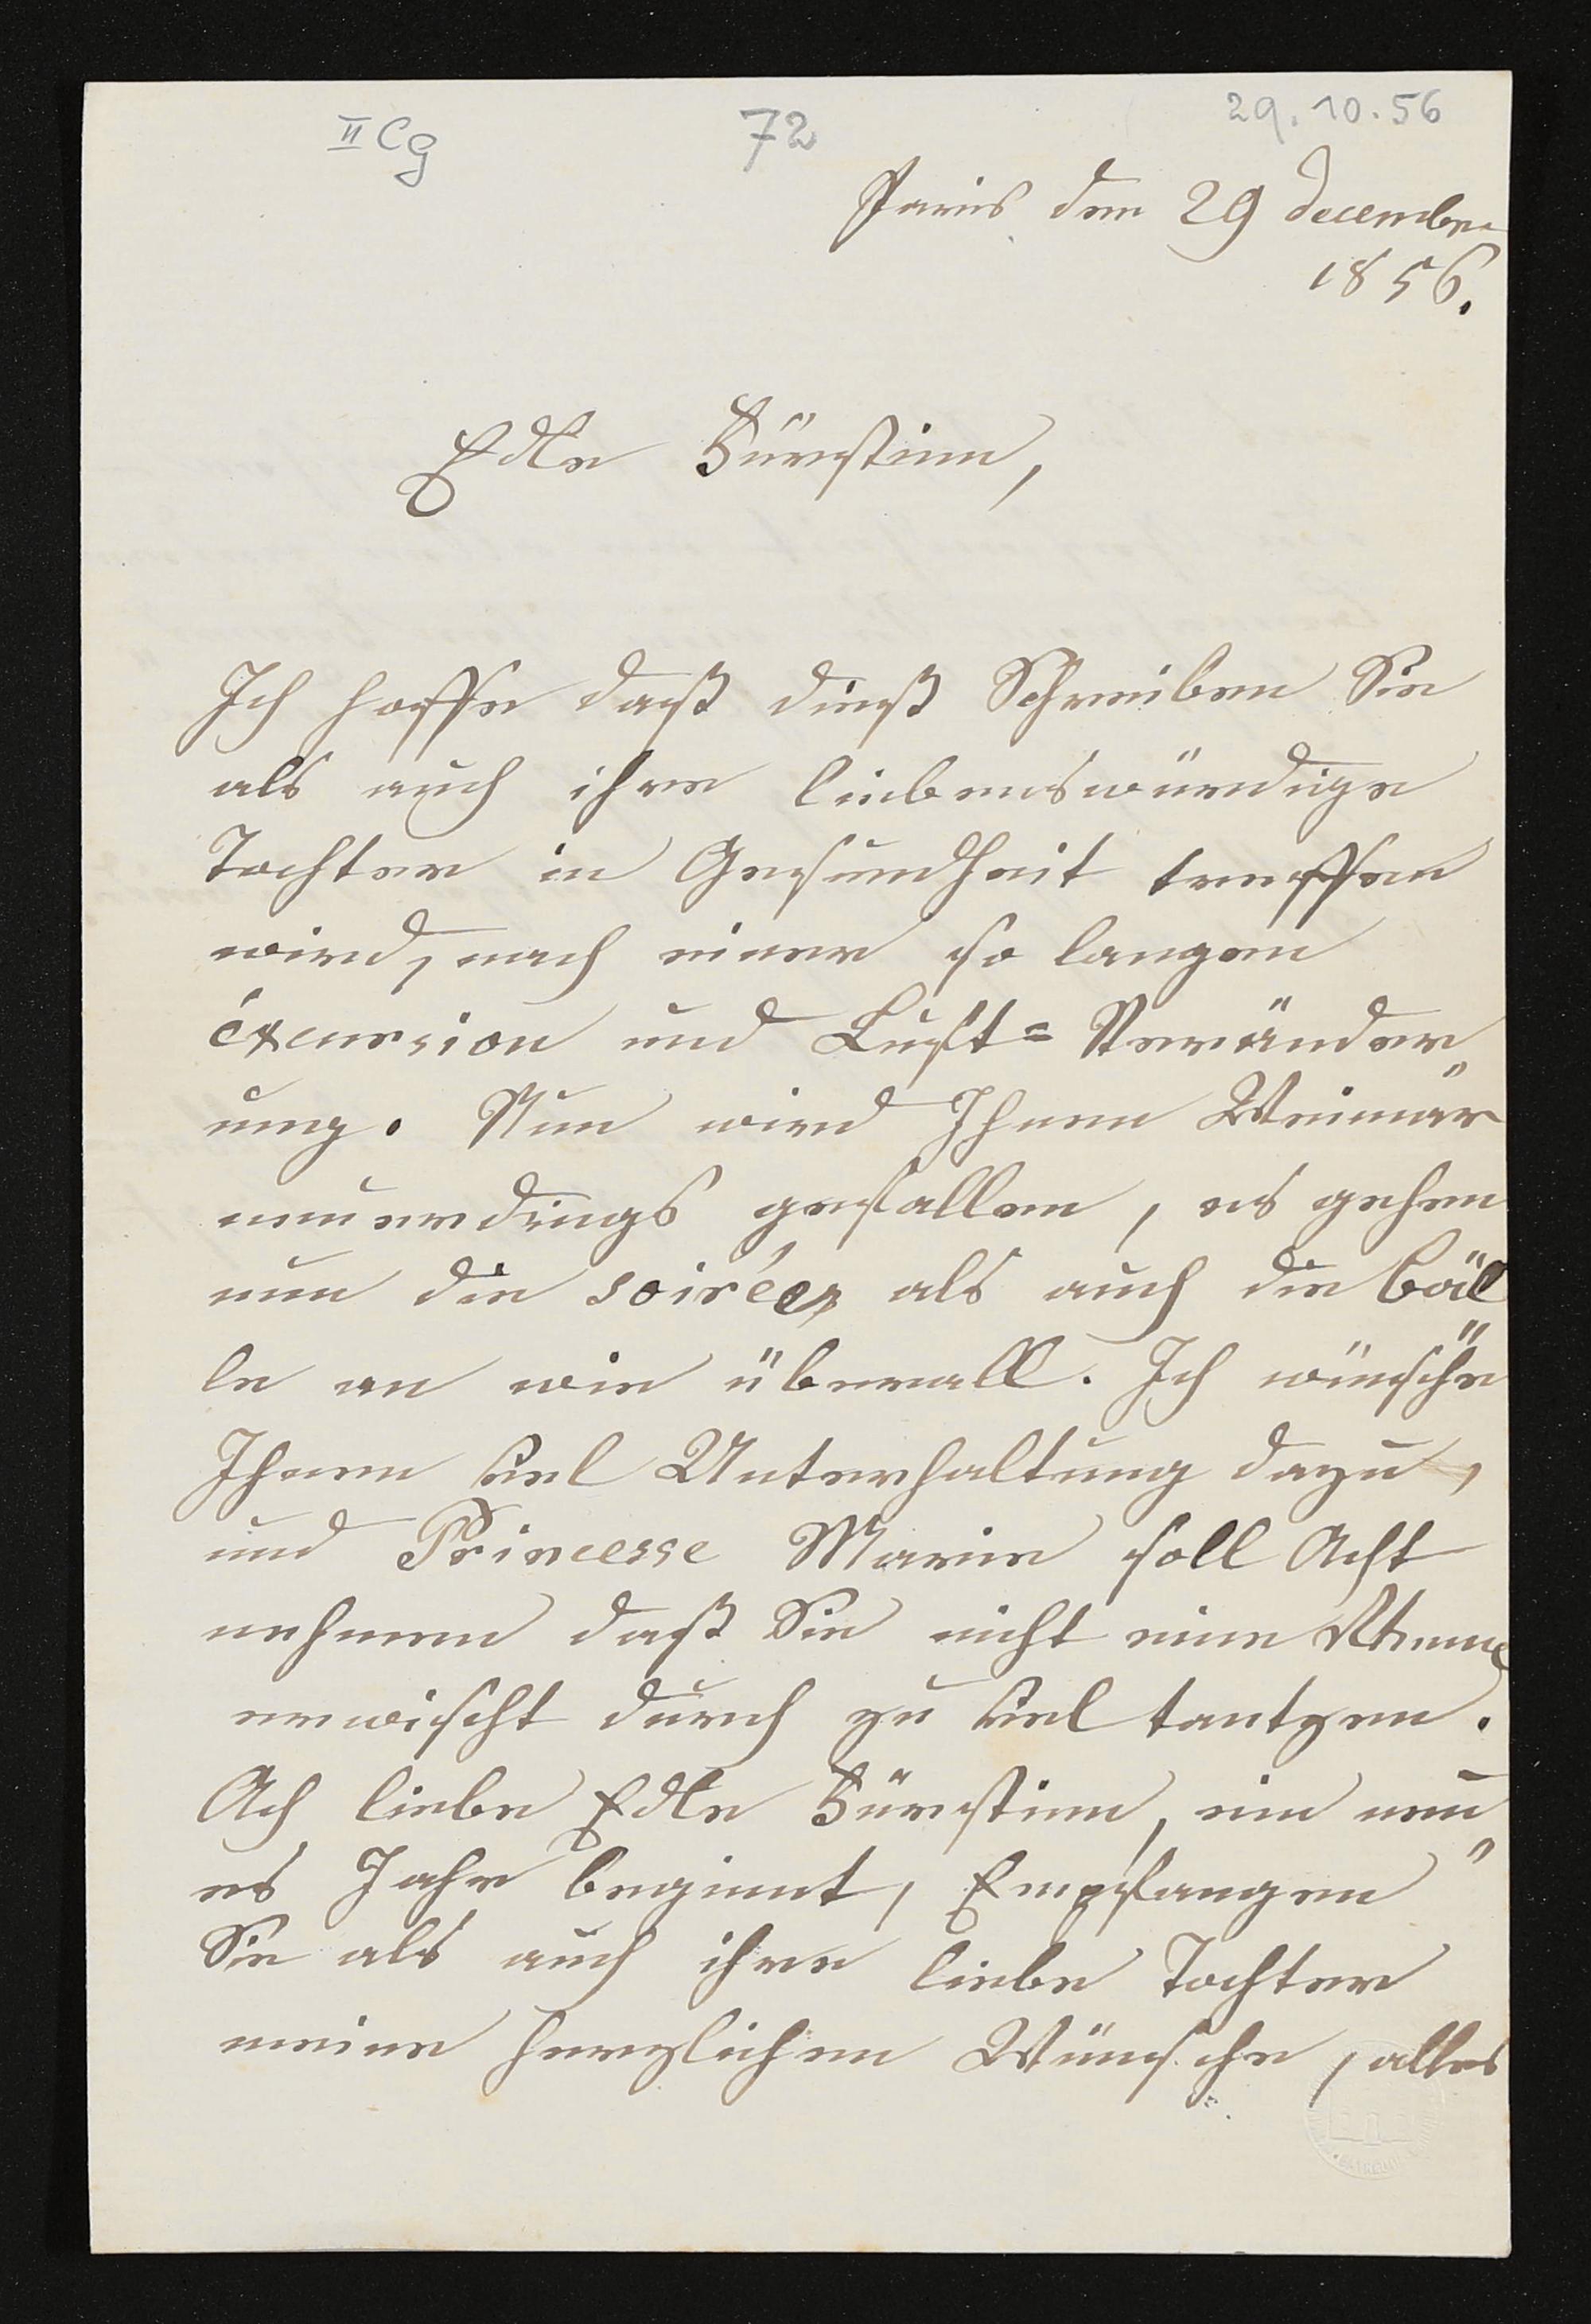 II Cg 72 29.10.56
Paris den 29 December
1856.
Edle Fürstinn,
Ich hoffe daß dieß Schreiben Sie
als auch ihre liebenswürdige
Tochter in Gesundheit treffen
wird, nach einer so langen
éxcursion und Luft=Veränder„
ung. Nun wird Ihnen Weimar
neuerdings gefallen, es gehen
nun die soiréen als auch die Bäl„
le an wie überall. Ich wünsche
Ihnen viel Unterhaltung dazu,
und Princesse Marie soll Acht
nehmen daß Sie nicht eine
erwischt durch zu viel tantzen.
Ach liebe Edle Fürstinn, ein neu„
es Jahr beginnt, Empfangen
Sie als auch ihre liebe Tochter
meine herzlichen Wünsche, alles